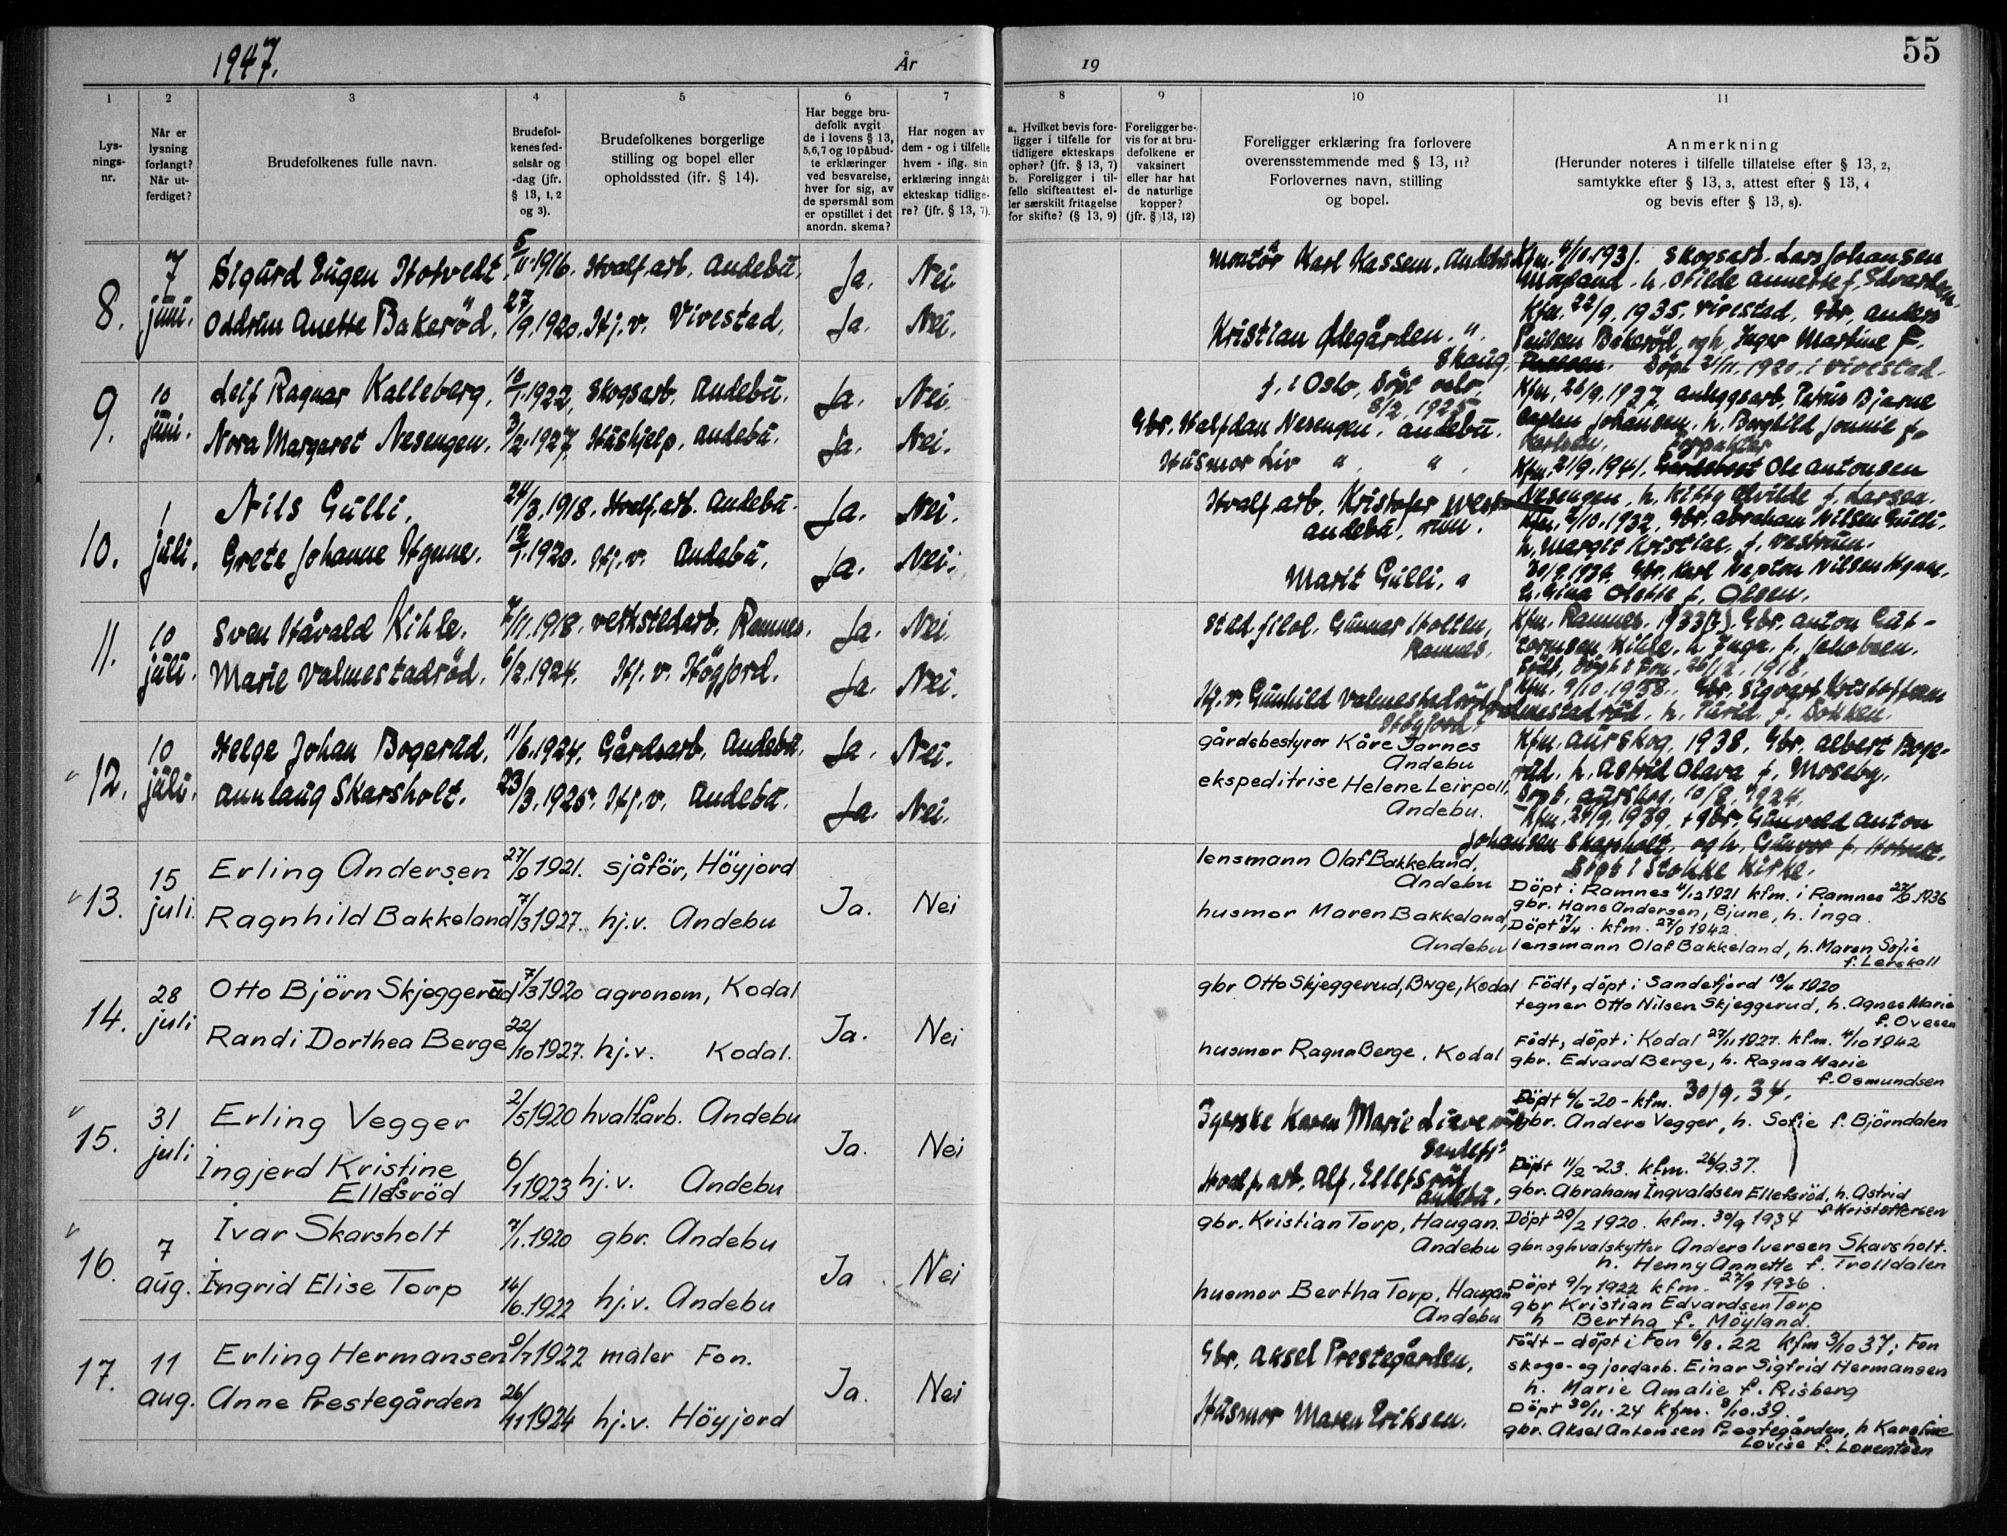 1947.
År
19
55
1
2
3
4
5
6
7
8
9
10
11
Lys-
nings-
nr.
Når er
lysning
forlangt?
Når ut-
ferdiget?
Brudefolkenes fulle navn.
Brudefol-
kenes fød-
selsår og
-dag (jfr.
§ 13, 1, 2
og 3).
Brudefolkenes borgerlige
stilling og bopel eller
opholdssted (ifr. § 14).
Har begge bru-
defolk avgit
de i lovens § 13,
5,6,7 og 10 påbud-
te erklæringer
ved besvarelse,
hver for sig, av
de spørsmål som
er opstillet i det
anordn. skema?
Har nogen av
dem - og i tilfelle
hvem - iflg. sin
erklæring inngåt
ekteskap tidlige-
re? (jfr. § 13, 7).
a. Hvilket bevis fore-
ligger i tilfelle for
tidligere ekteskaps
ophør? (jfr. § 13, 7)
b. Foreligger i til-
felle skifteattest el-
ler særskilt fritagelse
for skifte? (§ 13, 9)
Foreligger be-
vis for at bru-
defolkene er
vaksinert
eller har hat
de naturlige
kopper?
(jfr. § 13, 12)
Foreligger erklæring fra forlovere
overensstemmende med § 13, 11?
Forlovernes navn, stilling
og bopel.
Anmerkning
(Herunder noteres i tilfelle tillatelse efter § 13, 2,
samtykke efter § 13, 3, attest efter § 13, 4
og bevis efter § 13, 8).
8.
7 juni.
Sigurd Eugen Hotvedt. 5/11.1916. Hvalf.arb. Andebu. Ja. Nei
Oddrun Anette Bakerød. 27/9.1920. Hj.v. Vivestad. Ja. Nei.
Montør Karl Kassen, Andebu
Kristian Ødegården. "
Kfm. 4/10.1931. Skogsarb. Lars Johansen
Kfm. 22/9.1935. Vivestad. Gbr. Anders
Paulsen Bakerød, og h. Inger Martine f.
Døpt 21/11.1920. i Vivestad.
9.
10 juni.
Leif Ragnar Kalleberg. 10/1.1922, Skogsarb. Andebu. Ja. Nei.
Nora Margaret Nesengen. 3/2.1927, Hushjelp. Andebu. Ja. Nei.
f. i Oslo, døpt
8/2. 1925
Gbr. Halfdan Nesengen. Andebu.
Husmor Liv " "
Kfm. 26/9.1937, Anleggsarb. Petrus Bjarne
Johansen, h. Borghild Jonnie f.
Karlsen. Forpakter
Kfm. 21/9.1941. Ole Antonsen
Nesengen, h. Kitty Alvilde f. Larsen.
10.
1 juli.
Nils Gulli. 24/3.1918. Hvalf.arb. Andebu. Ja. Nei.
Grete Johanne Hynne. 12/1.1920. Hj.v. Andebu. Ja. Nei.
Hvalf.arb. Kristofer West-
Andebu, rum.
Marit Gulli, "
Kfm. 2/10.1932. Gbr. Abraham Nilsen Gulli.
h. Margit Kristine f. Vestrum.
30/9.1934. Gbr. Karl Nepton Nilsen Hynne,
h. Gina Olefie f. Olsen.
11.
10 juli.
Sven Håvald Kihle. 7/11.1918. Verkstedarb. Ramnes. Ja. Nei.
Marie Valmestadrød. 6/2.1924. Hj.v. Högjord. Ja. Nei.
Stud.filol. Gunnar Holten,
Ramnes.
Hj.v. Gunhild Valmestadrød,
Högjord.
Kfm. Ramnes. 1933(?). Gbr. Anton Gut-
tormsen Kihle, h. Inga f. Jakobsen.
Født, døpt 26/12. 1918.
Kfm. 9/10.1938. Gbr. Sigvart Kristoffersen
Valmestadrød. h. Turid f. Bakken.
12.
10 juli.
Helge Johan Bogerud. 11/6.1924. Gårdsarb. Andebu. Ja. Nei.
Annlaug Skarsholt. 23/3.1925. Hj.v. Andebu. Ja. Nei.
gårdsbestyrer Kåre Jarnes
Andebu
ekspeditrise Helene Leirpoll,
Andebu.
Kfm. Aurskog, 1938. Gbr. Albert Boge-
rud. h. Astrid Olava f. Moseby.
Døpt. Aurskog. 10/8.1924.
Kfm. 24/9.1939. + Gbr. Gunvald Anton
Johansen Skarsholt, og h. Gunvor f. Hotvedt.
Døpt i Stokke Kirke.
13.
15 juli.
Erling Andersen 27/9 1921. sjåför, Höyjord
Ragnhild Bakkeland 7/3 1927. hj.v. Andebu Ja. Nei
lensmann Olaf Bakkeland,
Andebu
husmor Maren Bakkeland,
Andebu
Döpt i Ramnes 4/12 1921 kfm. i Ramnes 27/9.1936
gbr. Hans Andersen, Bjune, h. Inga
Döpt 17/4. kfm. 27/9 1942
lensmann Olaf Bakkeland, h. Maren Sofie
f. Lerskall
14.
28 juli
Otto Björn Skjeggerud 7/3 1920 agronom, Kodal
Randi Dorthea Berge 22/10 1927. hj.v. Kodal. Ja. Nei
gbr Otto Skjeggerud, Berge, Kodal
husmor Ragna Berge, Kodal
Född, döpt i Sandefjord 18/4 1920
tegner Otto Nilsen Skjeggerud, h. Agnes Marie
f. Ovesen
Född, döpt i Kodal 27/11 1927. kfm. 4/10 1942
gbr. Edvard Berge, h. Ragna Marie
f. Osmundsen
15.
31 juli
Erling Vegger 2/5 1920 hvalf.arb. Andebu
Ingjerd Kristine
Ellefsröd 6/1 1923 hj.v. Andebu Ja. Nei
Karen Marie
Hvalf.arb. Alf. Ellefsrød
Andebu.
Döpt 6/6-20 - kfm. 30/9.34.
gbr. Anders Vegger, h. Sofie f. Björndalen
Döpt 11/2-23. kfm. 26/9 37.
gbr. Abraham Ingvaldsen Ellefsröd, h. Astrid
f. Kristoffersen
16.
7 aug.
Ivar Skarsholt 7/1.1920 gbr. Andebu
Ingrid Elise Torp 14/6.1922 hj.v. Andebu Ja Nei
gbr. Kristian Torp, Haugan.
Andebu
husmor Bertha Torp, Haugan
Andebu
Döpt 29/2 1920. kfm. 30/9 1934
gbr. og hvalskytter Anders Iversen Skarsholt.
h. Henny Annette f. Trolldalen
Döpt 9/7 1922 kfm. 27/9 1936.
gbr Kristian Edvardsen Torp
h Bertha f. Möyland.
17.
11 aug.
Erling Hermansen 9/7 1922 maler Fon.
Anne Prestegården 26/11 1924 hj.v. Höyjord Ja. Nei
Gbr. Aksel Prestegården.
Husmor Maren Eriksen.
Född - döpt i Fon 6/8.22 kfm 3/10 37 i Fon
skogs- og jordarb. Einar Sigfrid Hermansen
h. Marie Amalie f. Risberg
Döpt 30/11.24 kfm. 8/10.39.
gbr. Aksel Antonsen Prestegården, h Karoline
Lovise f. Lorentsen